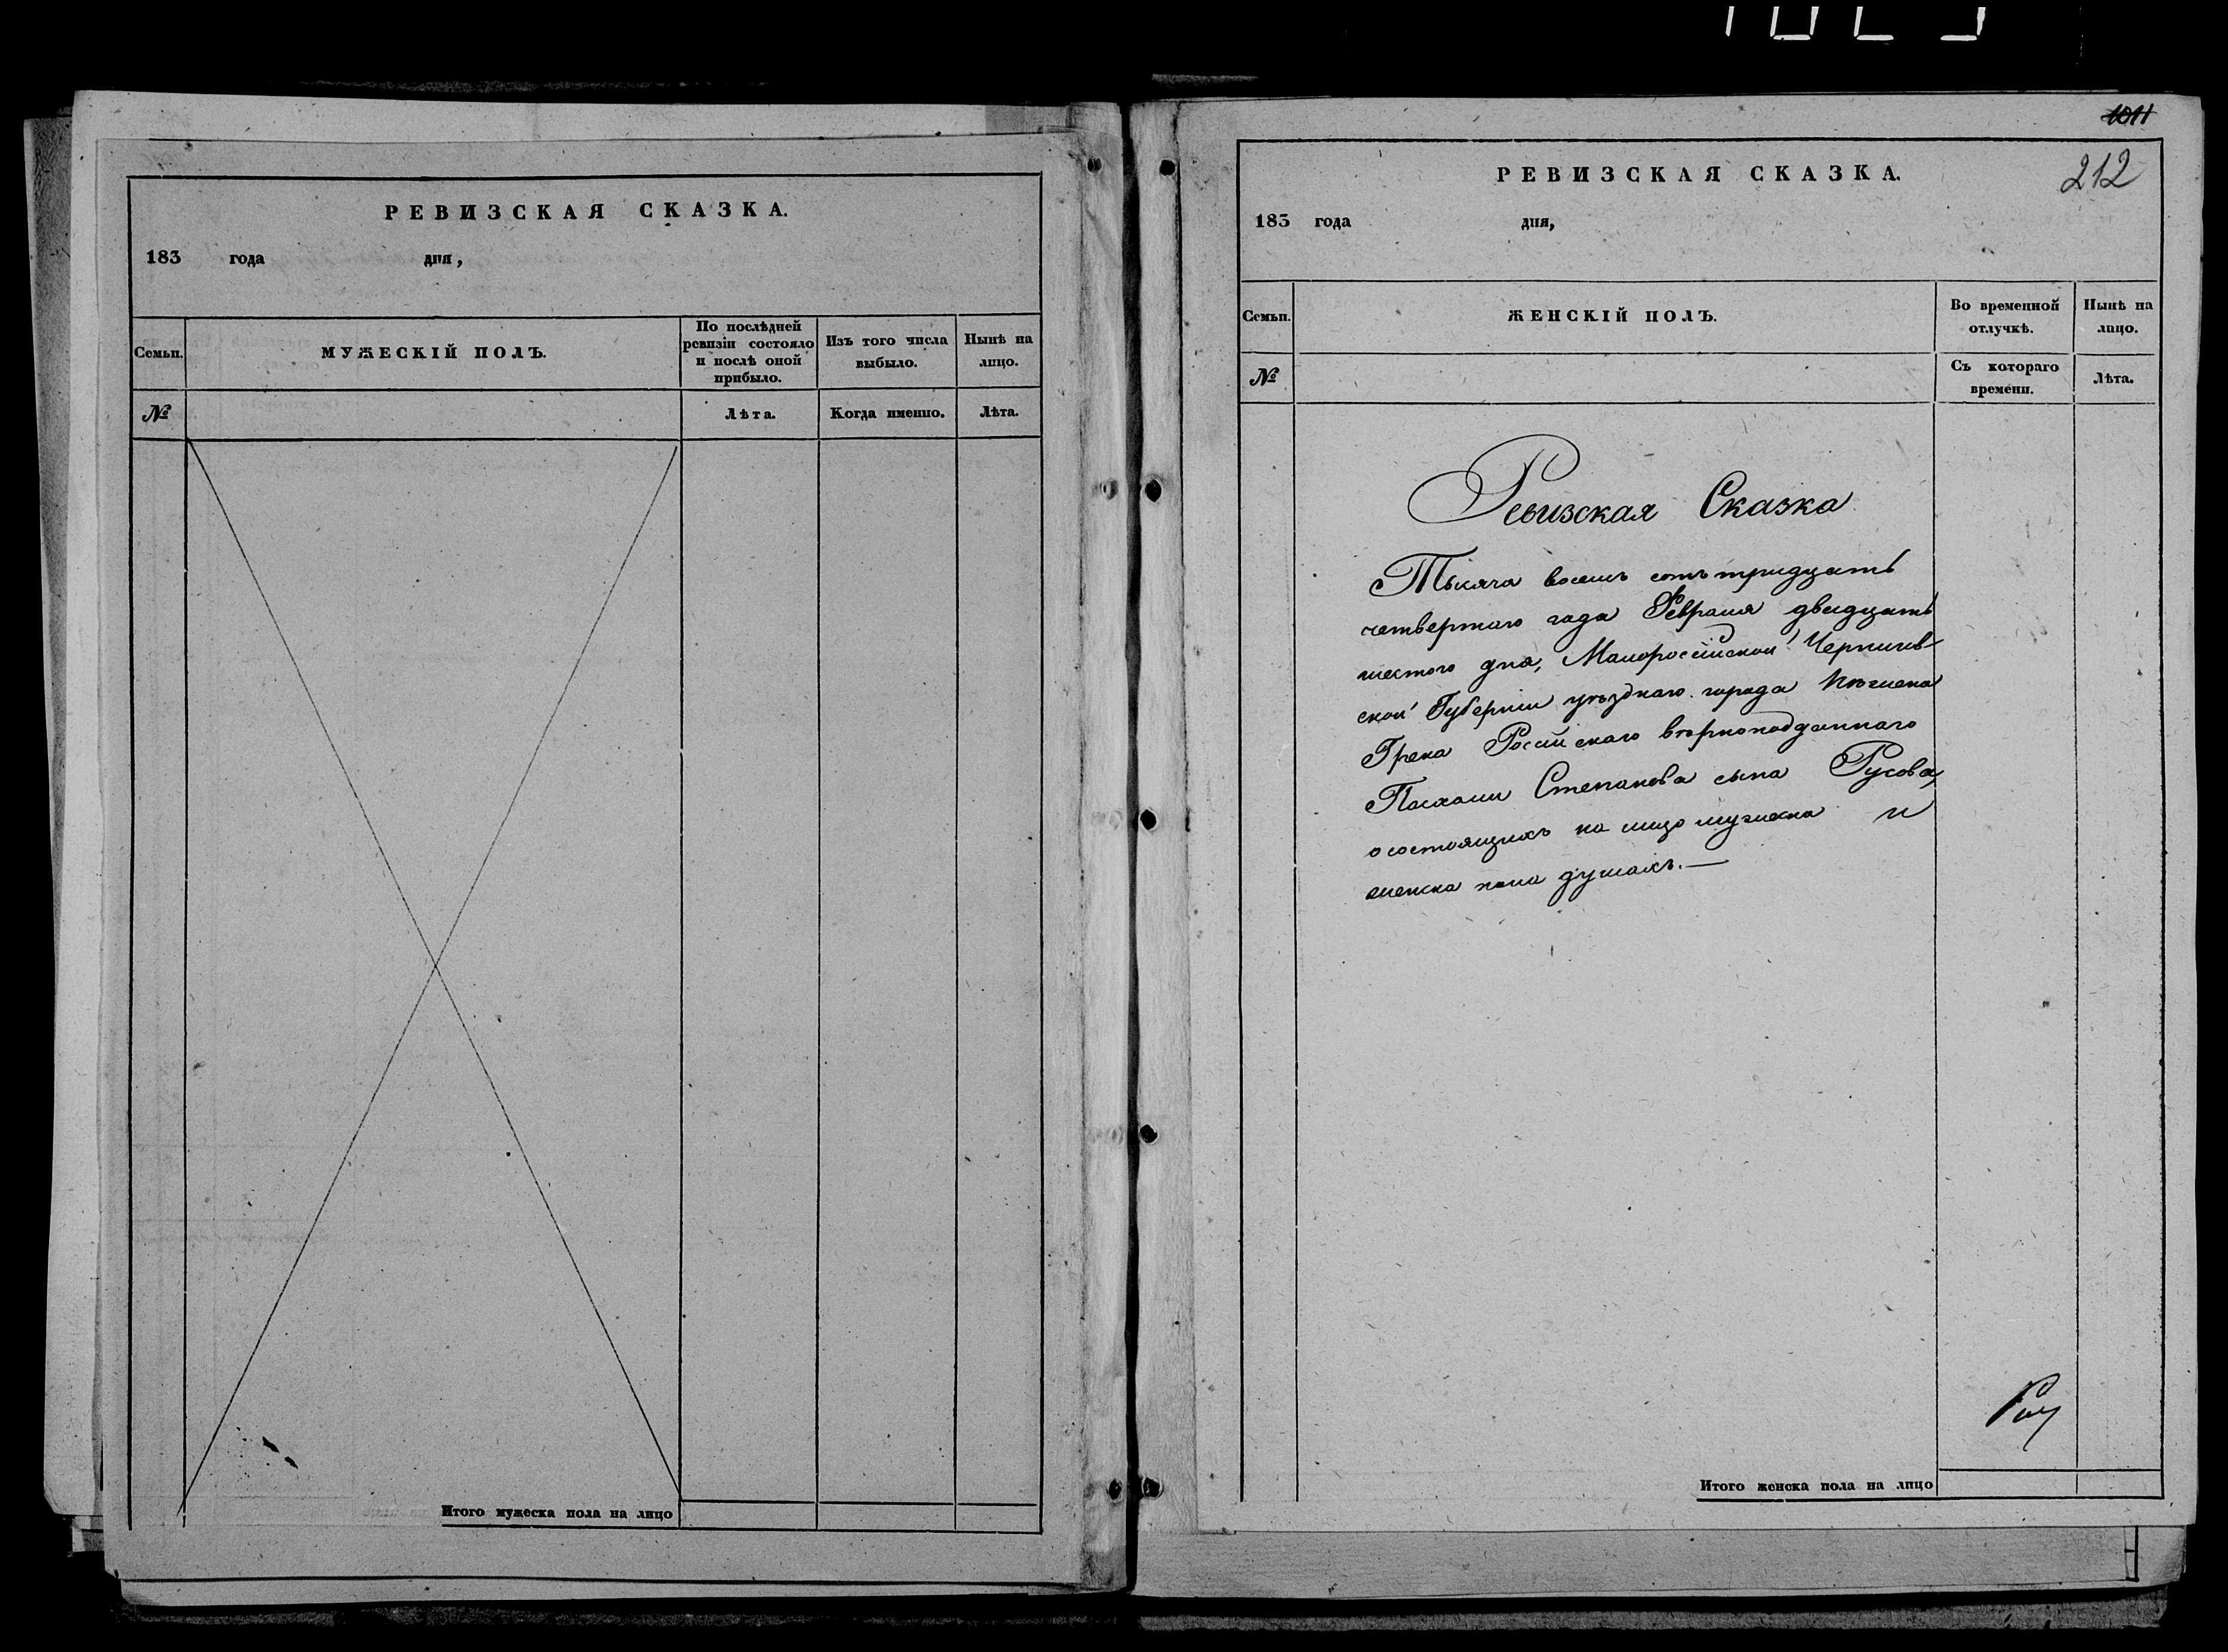 РЕВИЗСКАЯ СКАЗКА.
183 года дня,
Семьи.
МУЖЕСКІЙ ПОЛЪ.
По послѣдней
ревизіи состояло
и послѣ оной
прибыло.
Изъ того числа
выбыло.
Нынѣ на
лицо.
№
Лѣта.
Когда именно.
Лѣта.
Итого мужеска пола на лицо
1011
212
РЕВИЗСКАЯ СКАЗКА.
183 года дня,
Семьи.
ЖЕНСКІЙ ПОЛЪ.
Во временной
отлучкѣ.
Нынѣ на
лицо.
№
Съ котораго
времени.
Лѣта.
Ревизская Сказка
Тысяча восемь сотъ тридцать
четвертаго года Февраля двадцать
шестого дня, Малороссійской Чернигов-
ской Губерніи уѣзднаго города Нѣжина
Грека Россійскаго вѣрноподданнаго
Пасхали Степанова сына Русова,
о состоящихъ на лицо мужеска и
женска пола душахъ.—
Итого женска пола на лицо